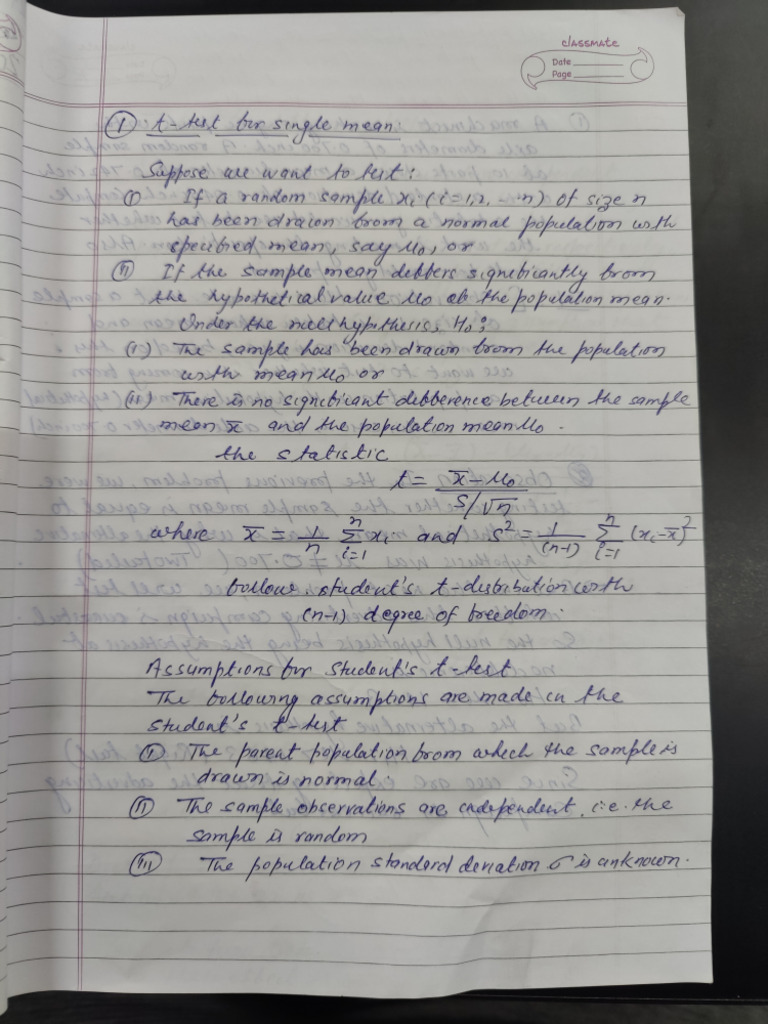 classmate
Date
Page
① t-test for single mean:
Suppose we want to test:
① If a random sample xi (i=1,2, ---n) of size n
has been drawn from a normal population with
specified mean, say μ₀, or
② If the sample mean differs significantly from
the hypothetical value μ₀ of the population mean.
Under the null hypthesis, H₀:
(i) The sample has been drawn from the population
with mean μ₀ or
(ii) There is no significant difference between the sample
mean x̄ and the population mean μ₀.
the statistic
t = (x̄ - μ₀) / (S/√n)
where x̄ = 1/n Σ_{i=1}^{n} xi and s² = 1/(n-1) Σ_{i=1}^{n} (xi - x̄)²
follows student's t-distribution with
(n-1) degree of freedom.
Assumptions for student's t-test
The following assumptions are made in the
student's t-test
① The parent population from which the sample is
drawn is normal.
② The sample observations are independent, i.e. the
sample is random
③ The population standard deviation σ is unknown.